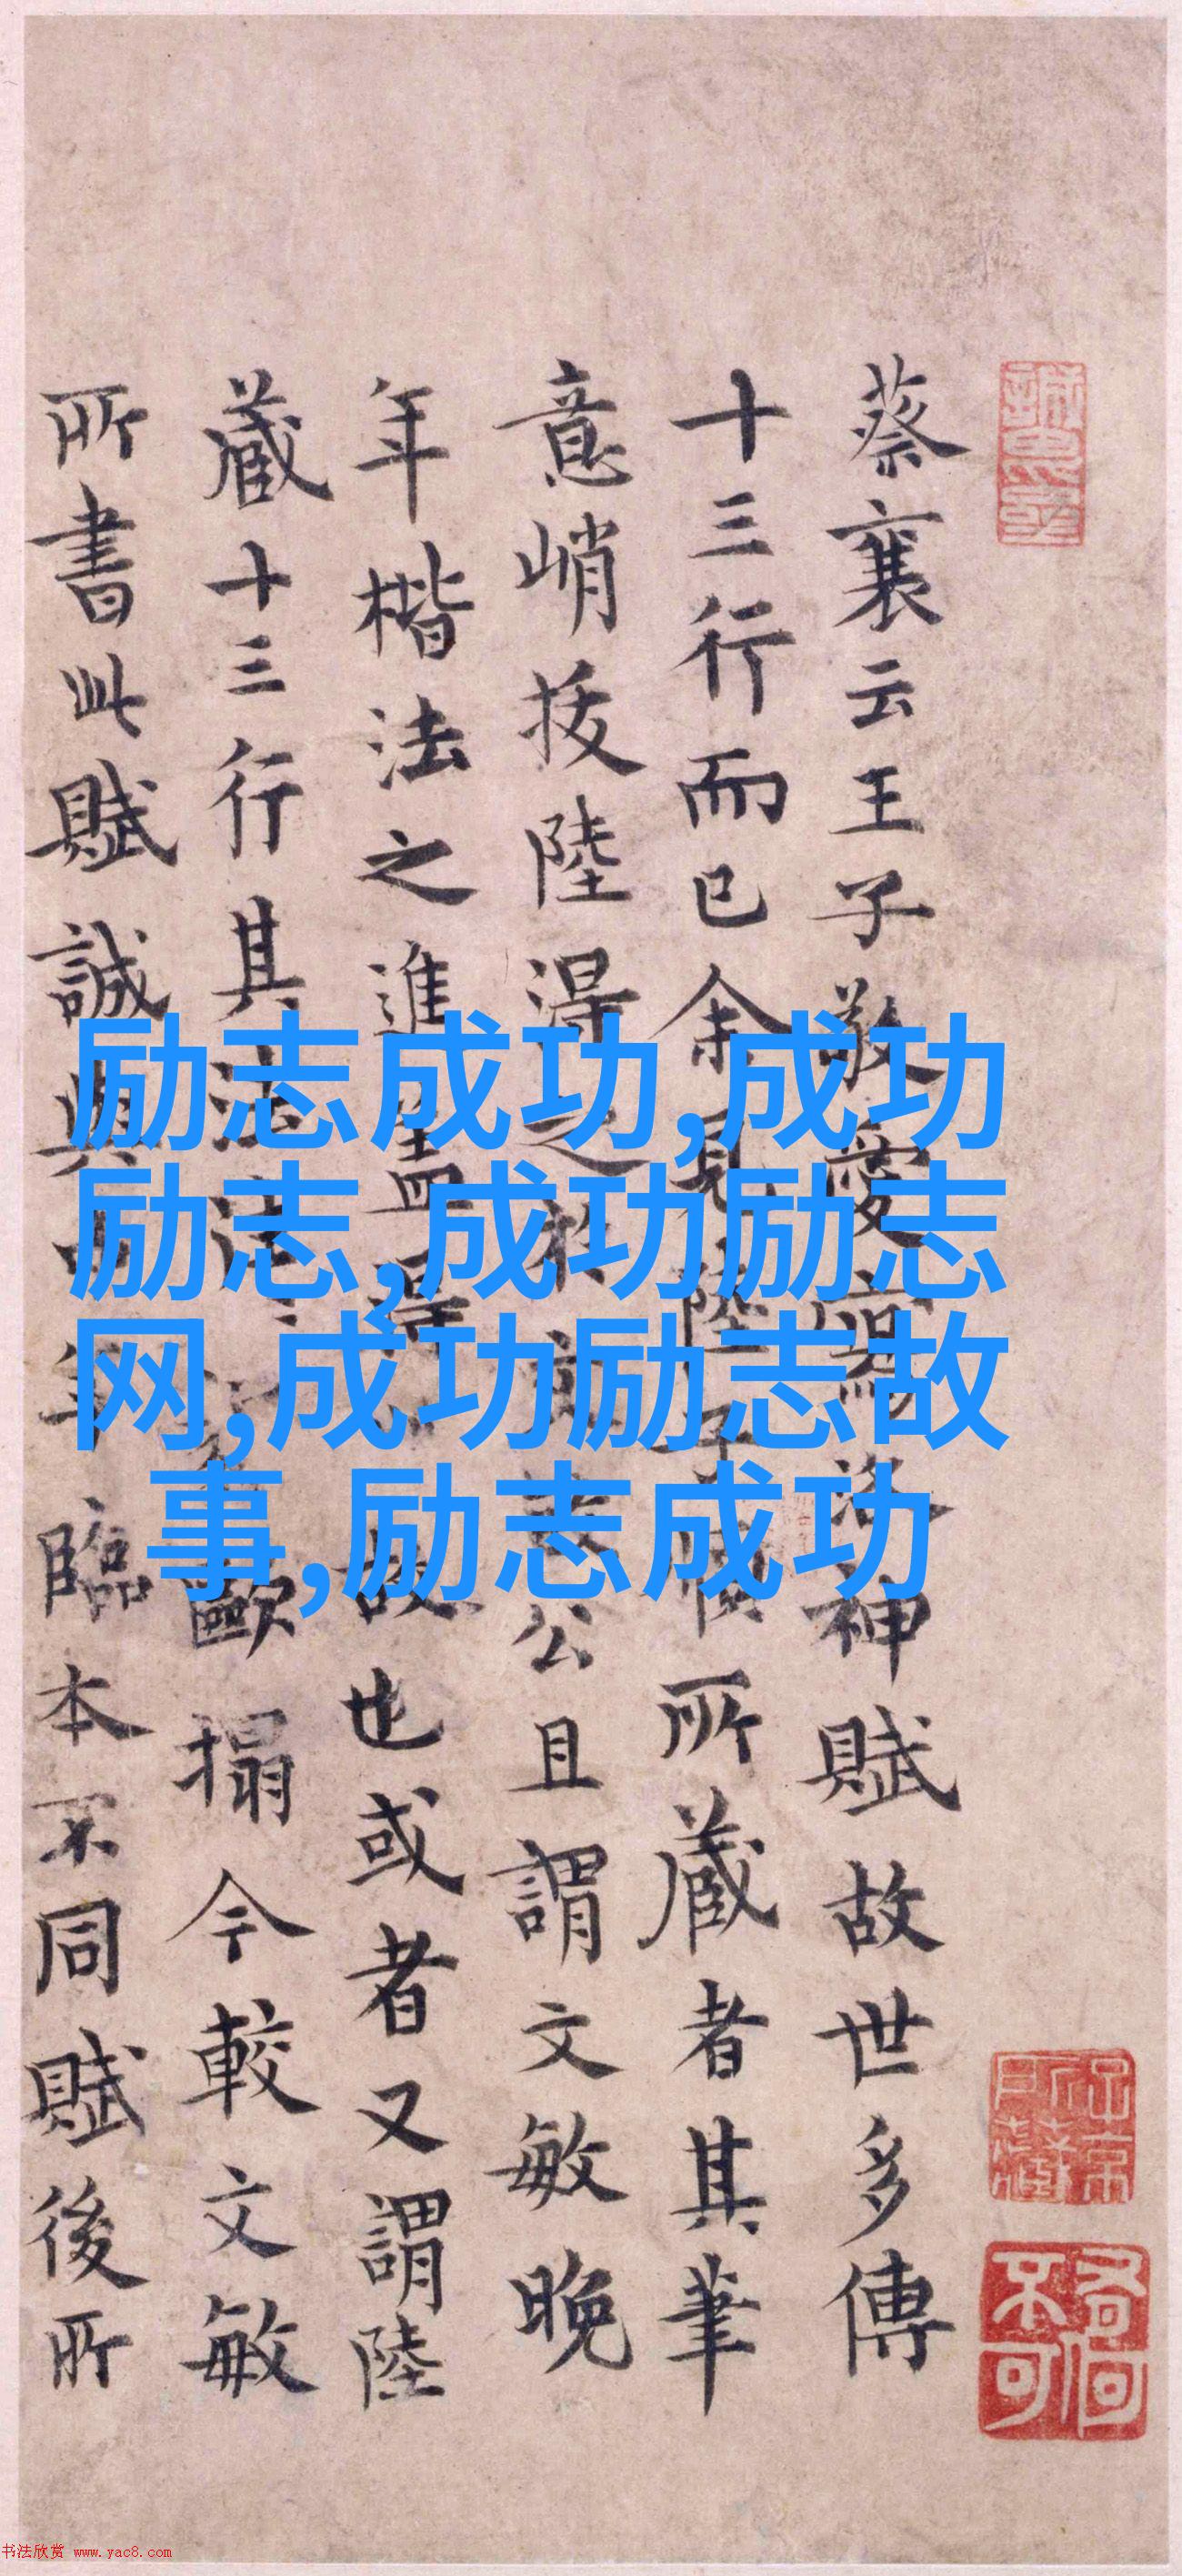 蔡襄云王子敬愛寫洛神賦故世多傳
十三行而已余見陸子順所藏者其筆
意峭拔陸得之於公且謂文敏晚
年楷法之進蓋得故也或者又謂陸
藏十三行其法歐搨今較文敏
所書此賦誠與年臨本不同賦後所
励志成功,成功
励志,成功励志
网,成功励志故
事,励志成功
书法欣赏 www.yac8.com